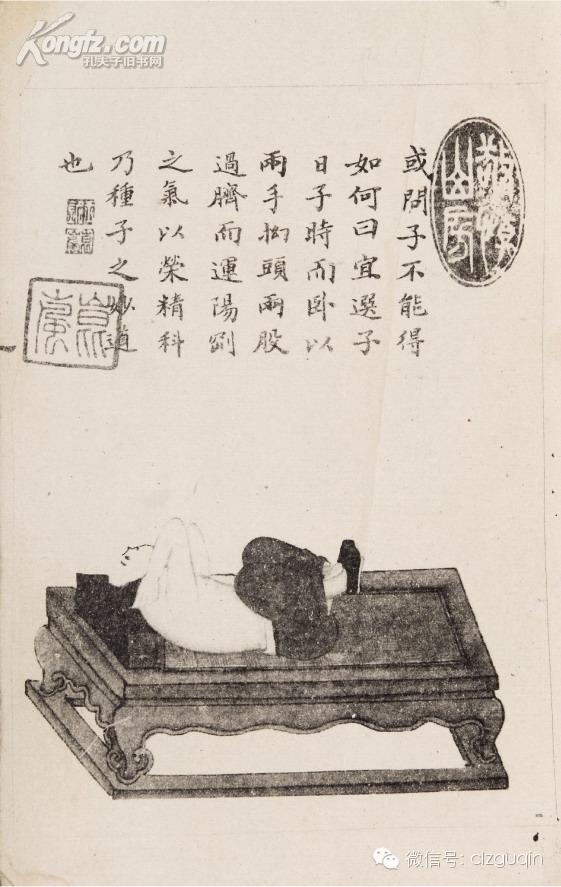 Kongfz.com
孔夫子旧书网
或問子不能得
如何曰宜選子
日子時而卧以
兩手抝頭兩股
過臍而運陽剛
之氣以榮精科
乃種子之妙道
也
微信号: clzguqin